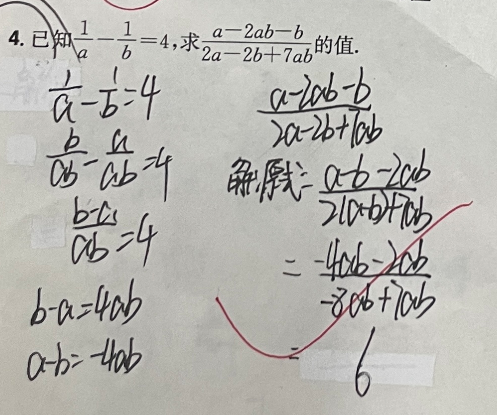 4. 已知1/a − 1/b = 4, 求(a−2ab−b)/(2a−2b+7ab)的值.
1/a − 1/b = 4
b/ab − a/ab = 4
(b−a)/ab = 4
b−a=4ab
a−b=−4ab
(a−2ab−b)/(2a−2b+7ab)
解:原式=(a−b−2ab)/(2(a−b)+7ab)
=(−4ab−2ab)/(−8ab+7ab)
= 6